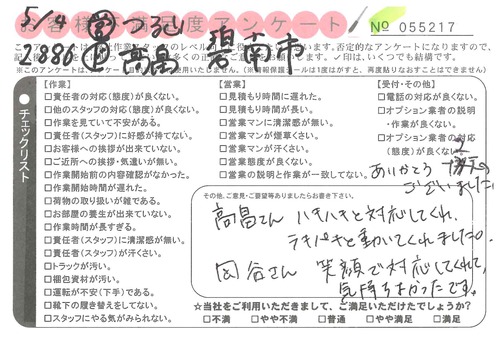 お客様満足度アンケート
No 055217
5/4
碧南市
2886
高畠
※このアンケートは、
(情報保護シールは1度はがすと、再度貼りなおすことはできません)
✓印は、いくつでも結構です。
チェックリスト
【作業】
□責任者の対応(態度)が良くない。
□他のスタッフの対応(態度)が良くない。
□作業を見ていて不安がある。
□責任者(スタッフ)に好感が持てない。
□お客様への挨拶が出来ていない。
□ご近所への挨拶・気遣いが無い。
□作業開始前の内容確認がなかった。
□作業開始時間が遅れた。
□荷物の取り扱いが雑である。
□お部屋の養生が出来ていない。
□作業時間が長すぎる。
□責任者(スタッフ)に清潔感が無い。
□責任者(スタッフ)が汗くさい。
□トラックが汚い。
□梱包資材が汚い。
□運転が不安(下手)である。
□靴下の履き替えをしていない。
□スタッフにやる気がみられない。
【営業】
□見積もり時間に遅れた。
□見積もり時間が長い。
□営業マンに清潔感が無い。
□営業マンが煙草くさい。
□営業マンが汗くさい。
□営業態度が良くない。
□営業の説明と作業が一致してない。
【受付・その他】
□電話の対応が良くない。
□オプション業者の説明
・作業が良くない。
□オプション業者の対応
(態度)が良くない
ありがとう
ございました
その他、ご意見・ご要望等ありましたらお書き下さい。
高畠さん ハキハキと対応してくれ、
テキパキと動いてくれました。
岡谷さん 笑顔で対応してくれて、
気持ちよかったです。
☆当社をご利用いただきまして、ご満足いただけたでしょうか?
□不満 □やや不満 □普通 □やや満足 □満足